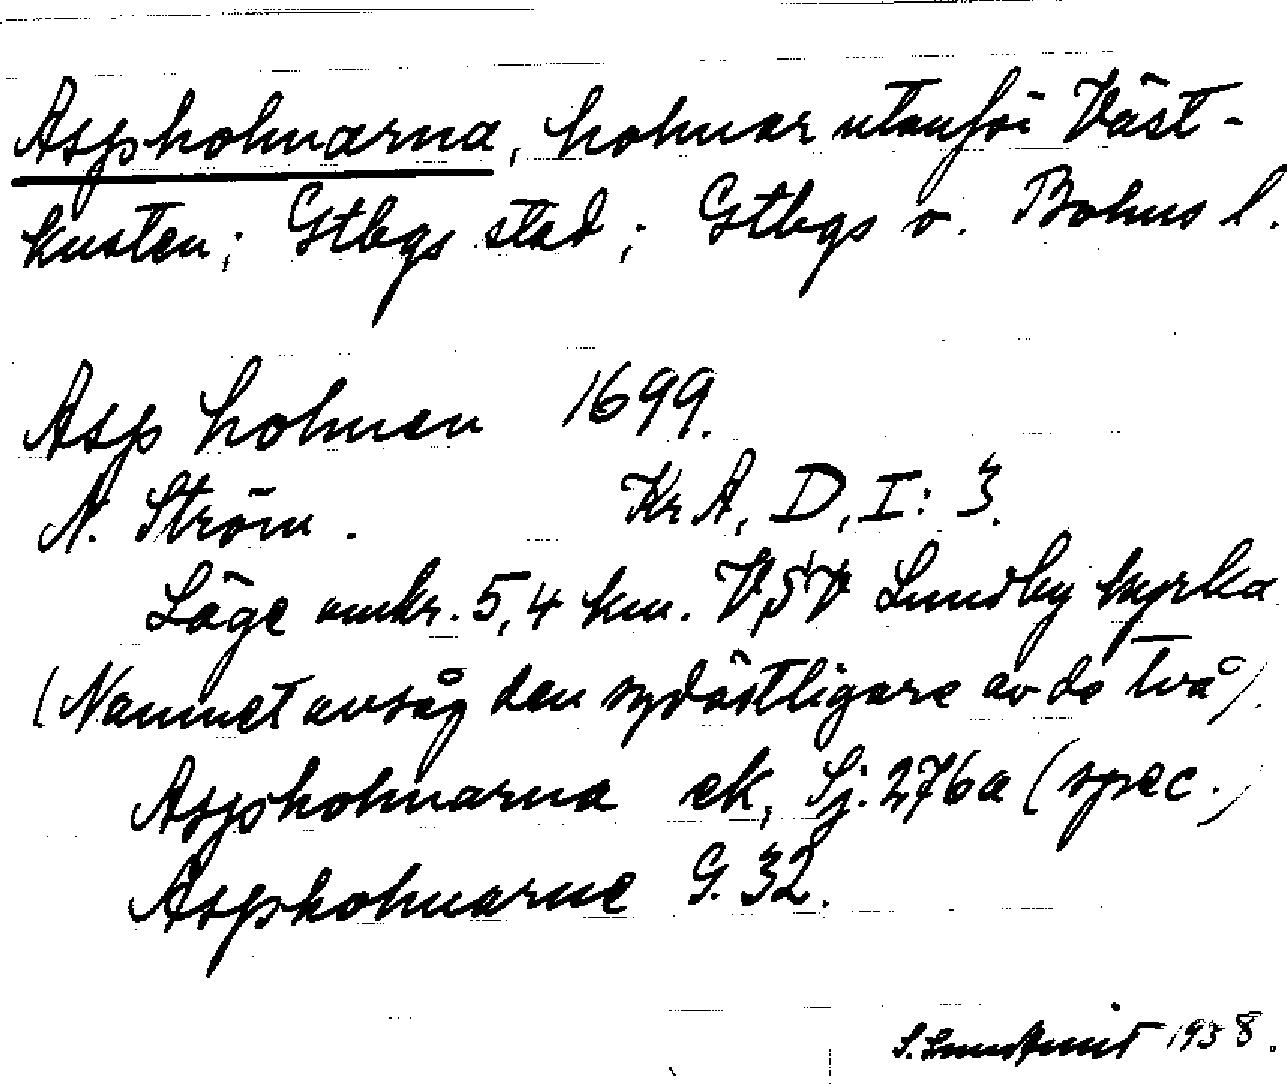 Aspholmarna, holmar utanför Väst-
kusten; Gtbgs stad; Gtbgs o. Bohus l.
Asp holmen 1699.
N. Ström. KrA, D, I: 3.
Läge omkr. 5,4 km. V,S,V Lundby kyrka
(Namnet avsåg den sydöstligare av de två).
Aspholmarna ek, Sj. 276a (spec.)
Aspholmarne G. 32.
S. Lundquist 1938.